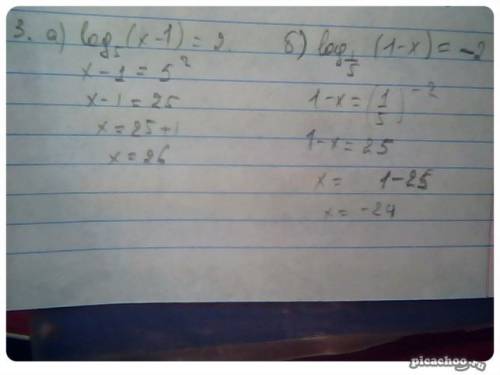 3. а) log₅(x-1) = 2.
x-1 = 5²
x-1 = 25
x = 25+1
x = 26
б) log_{1/5}(1-x) = -2
1-x = (1/5)⁻²
1-x = 25
x = 1-25
x = -24
picachoo.ru